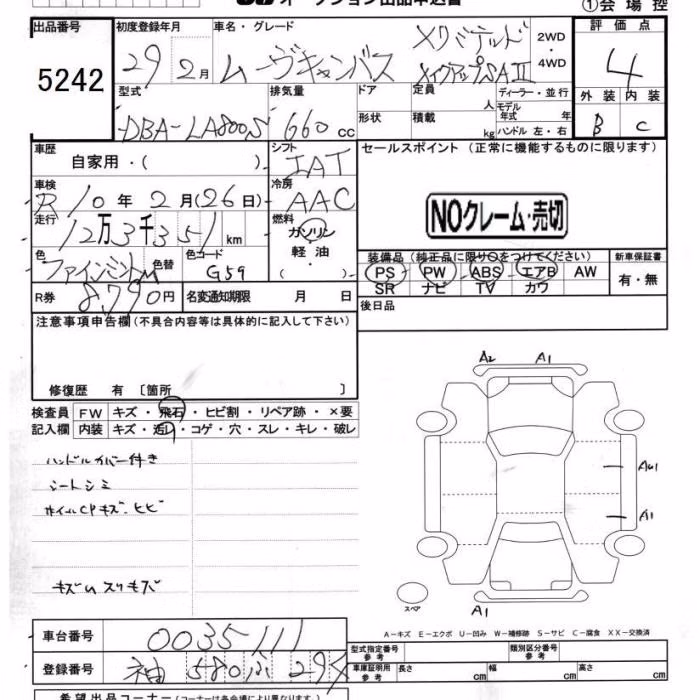 オークション出品申込書 ①会場控
出品番号 初度登録年月 車名・グレード 評価点
5242 29年2月 ムーヴキャンバス メイクアップSAⅡ 2WD・4WD 4
型式 排気量 ドア 定員 人 ディーラー・並行 外装 内装
DBA-LA800S 660cc 形状 積載 kg モデル年式 年 ハンドル 左・右 B C
車歴 シフト セールスポイント (正常に機能するものに限ります)
自家用・( ) IAT
車検 冷房
R10年2月(26日) AAC NOクレーム・売切
走行 燃料
12万3千351km ガソリン・軽油・( )
色 色替 色コード 装備品(純正品に限り○をつけてください) 新車保証書
ファインミントM G59 PS PW ABS エアB AW 有・無
SR ナビ TV カワ
R券 8,790円 名変通知期限 月 日 後日品
注意事項申告欄(不具合内容等は具体的に記入して下さい)
修復歴 有 [箇所 ]
検査員 FW キズ・飛石・ヒビ割・リペア跡・×要
記入欄 内装 キズ・汚れ・コゲ・穴・スレ・キレ・破レ
A2 A1
ハンドルカバー付き
シートシミ
ホイルCPキズ・ヒビ
A1
キズ スリキズ
スペア A1
A-キズ E-エクボ U-凹み W-補修跡 S-サビ C-腐食 XX-交換済
車台番号 0035111
登録番号 580 型式指定番号 参考 類別区分番号 参考
車庫証明用 参考 長さ cm 幅 cm 高さ cm
希望出品コーナー(コーナーは各会場により異なります。)